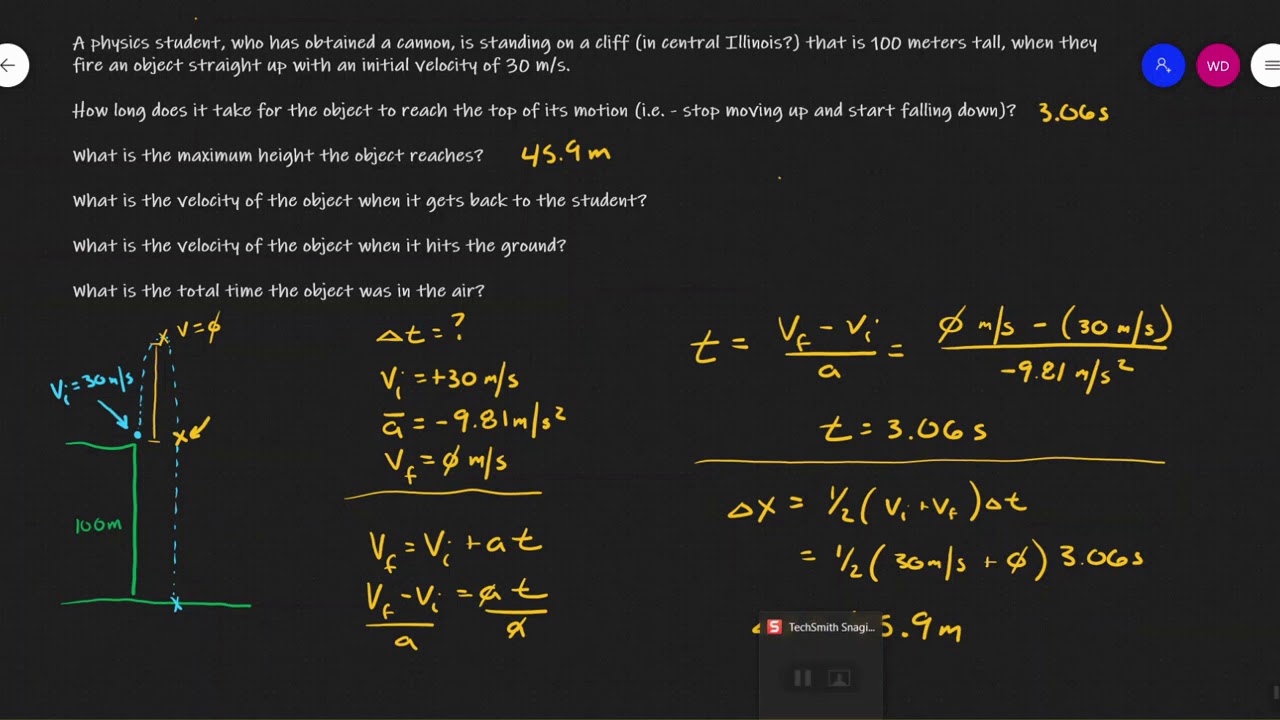 A physics student, who has obtained a cannon, is standing on a cliff (in central Illinois?) that is 100 meters tall, when they
fire an object straight up with an initial velocity of 30 m/s.
WD
How long does it take for the object to reach the top of its motion (i.e. - stop moving up and start falling down)? 3.06s
What is the maximum height the object reaches? 45.9m
What is the velocity of the object when it gets back to the student?
What is the velocity of the object when it hits the ground?
What is the total time the object was in the air?
V=ϕ
Vi=30m/s
100m
Δt=?
Vi=+30m/s
a̅=-9.81m/s²
Vf=ϕm/s
Vf=Vi+at
Vf-Vi=at
a a
t= Vf-Vi = ϕm/s-(30m/s)
a -9.81m/s²
t=3.06s
Δx=½(Vi+Vf)Δt
=½(30m/s+ϕ)3.06s
5.9m
TechSmith Snagi...